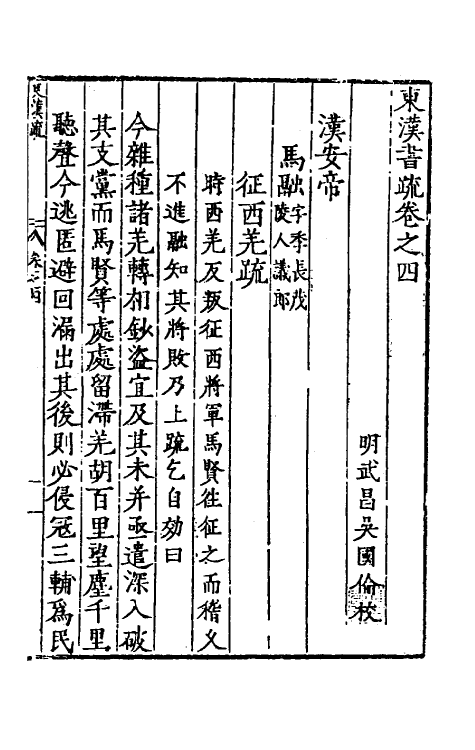 東漢書疏卷之四
明武昌吳國倫校
漢安帝
馬融字季長茂
陵人議郎
征西羌疏
時西羌反叛征西將軍馬賢往征之而稽久
不進融知其將敗乃上疏乞自効曰
今雜種諸羌轉相鈔盜宜及其未并亟遣深入破
其支黨而馬賢等處處留滯羌胡百里望塵千里
聽聲今逃匿避回漏出其後則必侵冦三輔爲民
東漢疏
卷之四
一